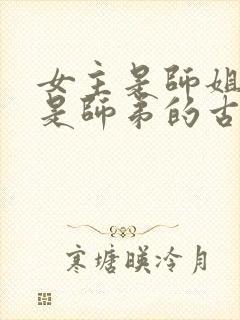 女主是師姐
是師弟的古
寒塘暎冷月